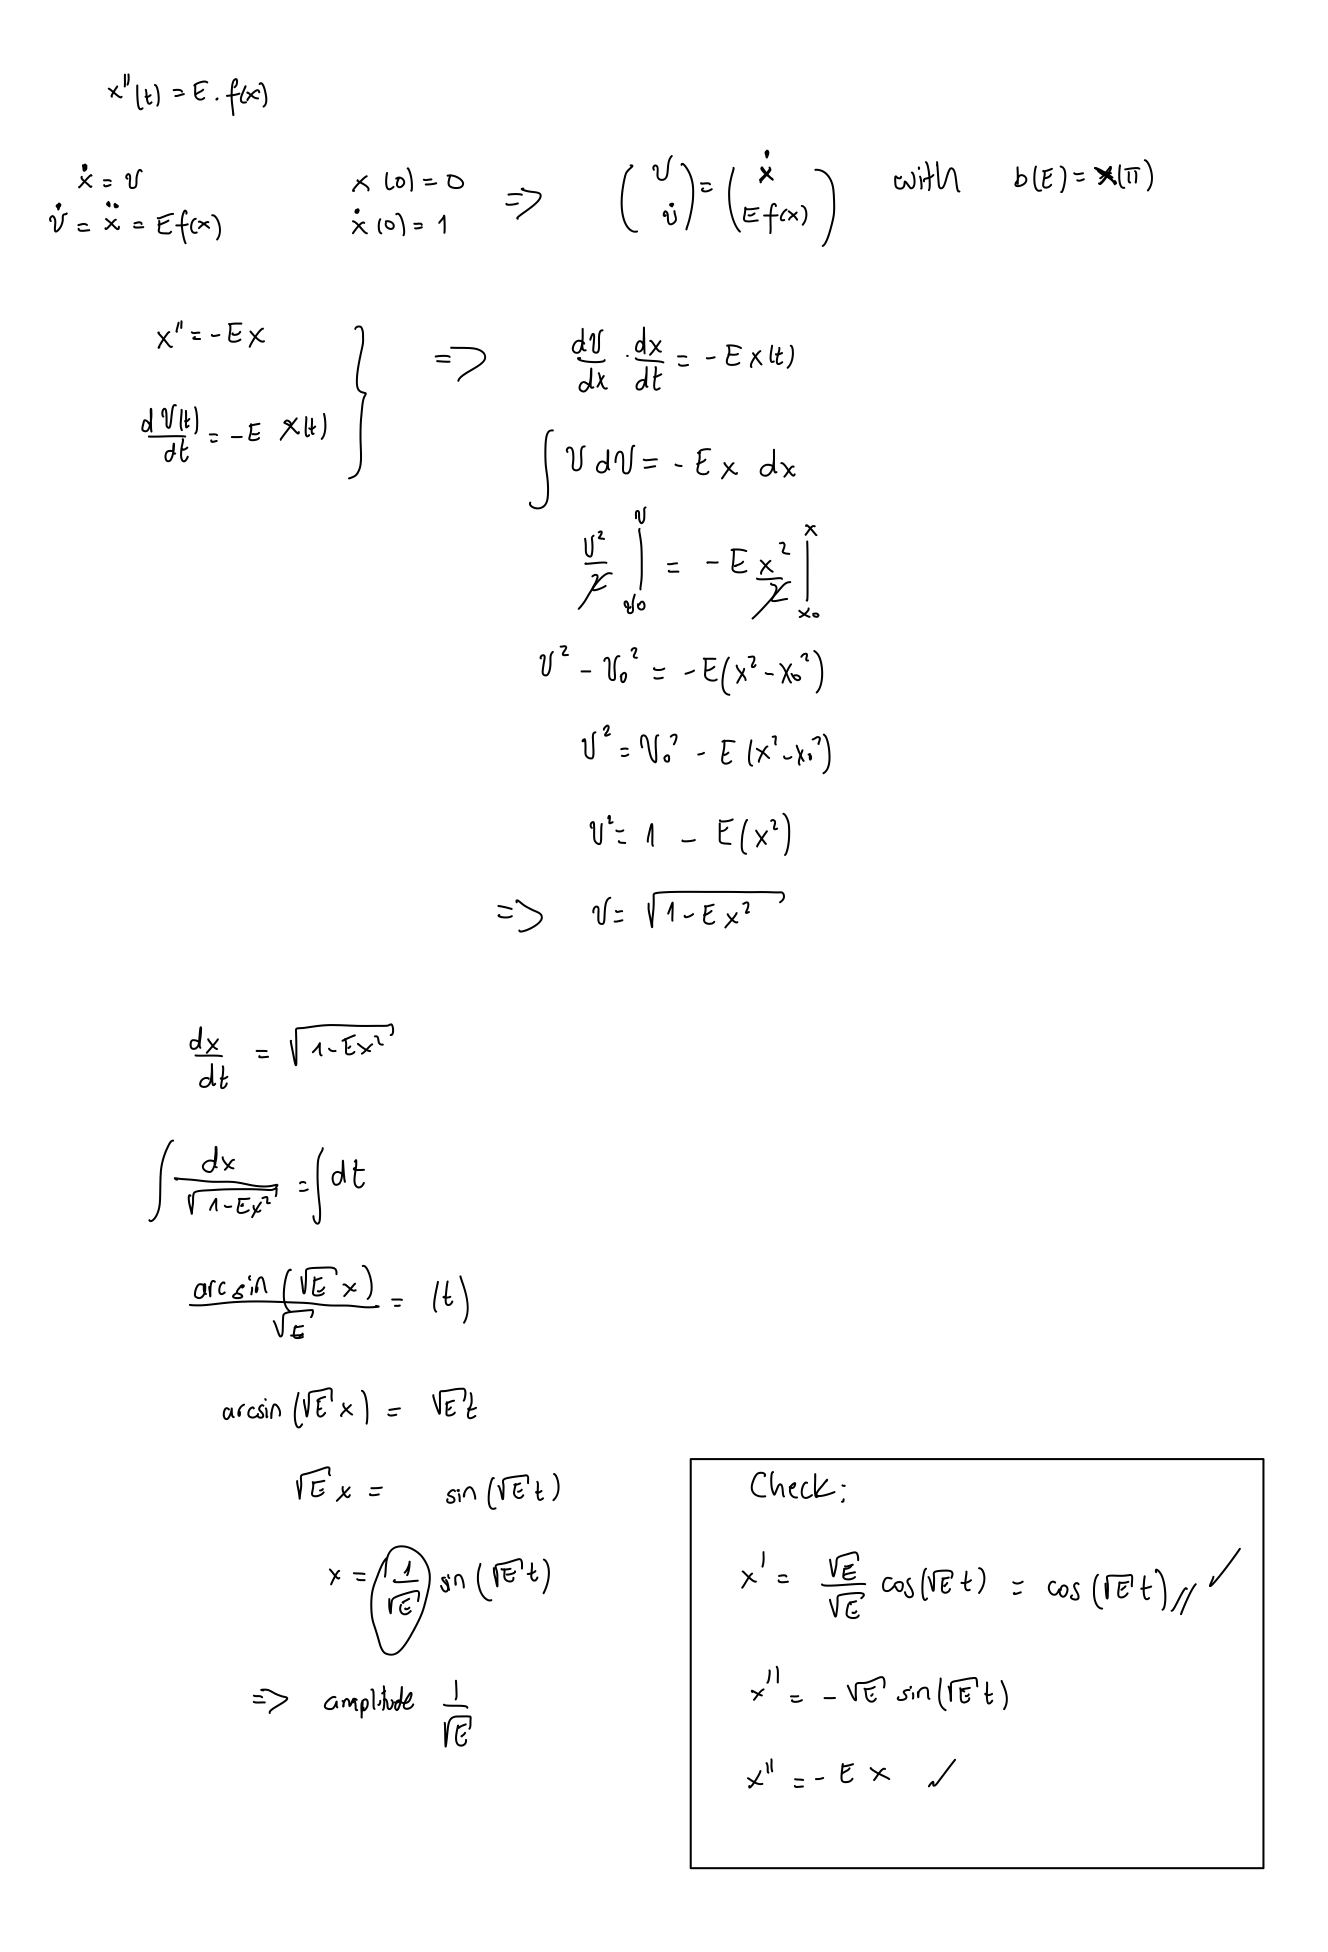 x''(t) = E . f(x)
ẋ = v x(0) = 0 => (v v̇) = (ẋ Ef(x)) with b(E) = x(π)
v̇ = ẍ = Ef(x) ẋ(0) = 1
x'' = -Ex
dv(t)/dt = -E x(t)
=> dv/dx · dx/dt = -E x(t)
∫ v dv = -E x dx
v²/2 |_{v0}^{v} = -E x²/2 |_{x0}^{x}
v² - v0² = -E(x² - x0²)
v² = v0² - E(x² - x0²)
v² = 1 - E(x²)
=> v = √(1-Ex²)
dx/dt = √(1-Ex²)
∫ dx/√(1-Ex²) = ∫ dt
arcsin(√E x)/√E = (t)
arcsin(√E x) = √E t
√E x = sin(√E t)
x = (1/√E) sin(√E t)
=> amplitude 1/√E
Check:
x' = √E/√E cos(√E t) = cos(√E t) // ✓
x'' = -√E sin(√E t)
x'' = -E x ✓